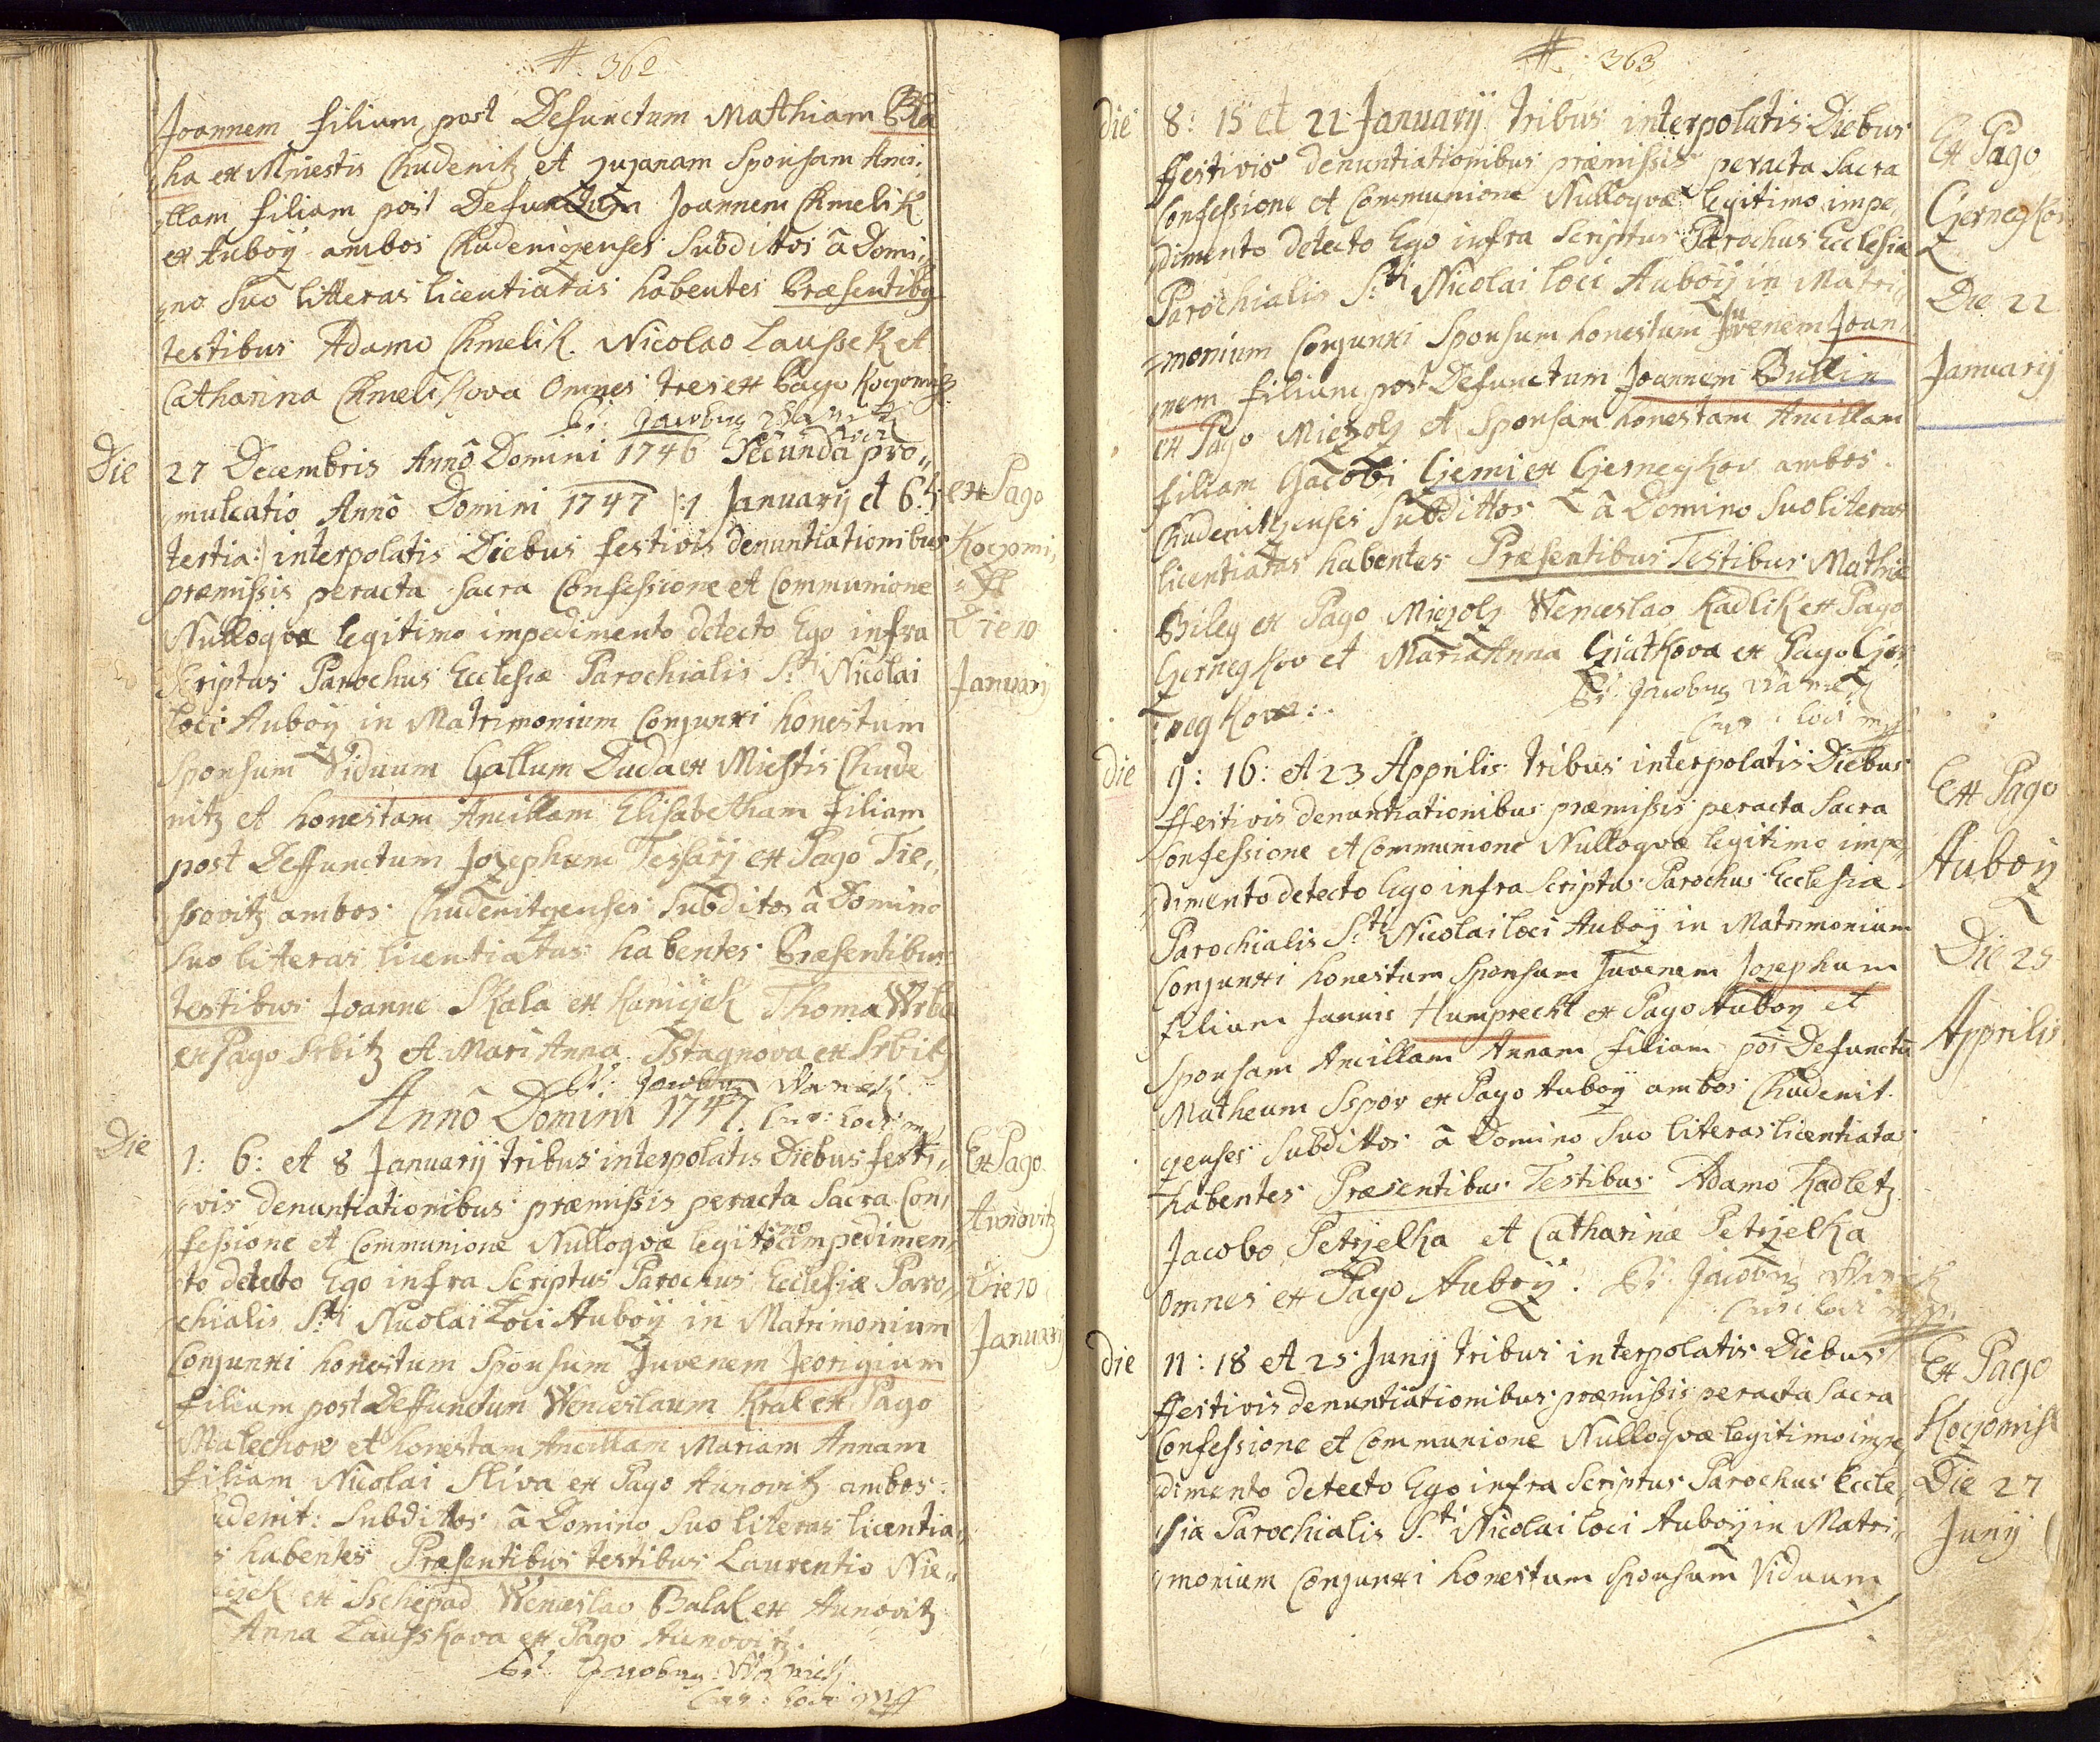 #. 362
Joannem filium post Defunctum Mathiam Bla
„ha ex Miestis Chudenitz et Zuzanam Sponsam Anci„
„llam filiam post Defunctum Joannem Chmelik
ex Auboÿ ambos Chudenizenses Subdittos â Domi„
„no Suo litteras licentiatas habentes Præsentibq
testibus Adamo Chmelik. Nicolao Laussek et
Catharina Chmelikova Omnes tres ex Pago Kozomis
Pr: Jacobus
Loci
Die 27 Decembris Annô Domini 1746 Secunda pro„
„mulcatio Annô Domini 1747 |:1 Januarÿ et 6ta
tertia:| interpolatis Diebus festivis denuntiationibus
præmissis peracta sacra Confessione et Communione
Nulloqvæ legitimo impedimento detecto Ego infra
Scriptus Parochus Ecclesiæ Parochialis S:ti Nicolai
loci Auboÿ in Matrimonium Conjunxi honestum
Sponsum Viduum Gallum Duda ex Miestis Chude
nitz et honestam Ancillam Elisabetham filiam
post Deffunctum Josephum Tessarÿ ex Pago Tie„
ssovitz ambos Chudenitzenses Subditos â Domino
Suo litteras licentiatas habentes Præsentibus
testibus Joanne Skala ex Kaniczek Thoma Wrba
ex Pago Srbitz et Mari Anna Sstagnova ex Srbitz
ex Pago
Kozomi„
„ss
Die 10
Januarÿ
Pr: Jacobus Wanek
Annô Domini 1747. Cur: loci mp
Die 1: 6: et 8 Januarÿ tribus interpolatis Diebus festi„
„vis denuntiationibus præmissis peracta Sacra Con„
„fessione et Communione Nulloqvæ legitimo impedimen„
„to detecto Ego infra Scriptus Parochus Ecclesiæ Paro„
„chialis S:ti Nicolai Loci Auboÿ in Matrimonium
Conjunxi honestum Sponsum Juvenem Jeorigium
filium post Deffunctum Wenceslaum Kral ex Pago
Malechow et honestam Ancillam Mariam Annam
filiam Nicolai Sliva ex Pago Aunovitz ambos
udenit: Subdittos â Domino Suo literas licentia„
s habentes Præsentibus testibus Laurentio Nie„
czek ex Sschepad Wenceslao Balak ex Aunovitz
Anna Lausskova ex Pago Aunovitz.
Ex Pago
Aunovitz
Die 10
Januarÿ
Pr: Jacobus Wanek
Cur: loci mp
#. 363
Die 8: 15 et 22 Januarÿ tribus interpolatis Diebus
ffestivis denuntiationibus præmissis peracta Sacra
Confessione et Communione Nulloqvæ legitimo impe„
„dimento detecto Ego infra Scriptus Parochus Ecclesiæ
Parochialis S:ti Nicolai loci Auboÿ in Matri„
„monium Conjunxi Sponsum honestum Juvenem Joan„
„nem filium post Defunctum Joannem Bullin
ex Pago Miezolz et Sponsam honestam Ancillam
filiam Jacobi Cjemi ex Cjernegkov ambos
Chudenitzenses Subdittos â Domino Suo literas
licentiatas habentes Præsentibus Testibus Mathiæ
Bileg ex Pago Miezolz Wenceslao Kadlik ex Pago
Cjernegkov et Maria Anna Cjiatkova ex Pago Cjer„
„negkova:.
Ex Pago
Cjernegkov
Die 22
Januarÿ
Pr: Jacobus Wanek
Cur: loci mp
Die 9: 16: et 23 Apprilis tribus interpolatis Diebus
ffestivis denuntiationibus præmissis peracta Sacra
Confessione et Communione Nulloqvæ legitimo impe„
„dimento detecto Ego infra Scriptus Parochus Ecclesiæ
Parochialis S:ti Nicolai loci Auboÿ in Matrimonium
Conjunxi honestum Sponsum Juvenem Josephum
filium Jannis Humprecht ex Pago Auboÿ et
Sponsam Ancillam Annam filiam post Defunctũ
Matheum Sspor ex Pago Auboÿ ambos Chudenit„
zenses Subdittos â Domino Suo literas licentiatas
habentes Præsentibus Testibus Adamo Kadletz
Jacobo Petrzelka et Catharinæ Petrzelka
Omnes ex Pago Auboÿ. Pr: Jacobus Wanek
Cur: loci mp
Ex Pago
Auboÿ
Die 25
Apprilis
Die 11: 18 et 25 Junÿ tribus interpolatis Diebus
ffestivis denuntiationibus præmissis peracta Sacra
Confessione et Communione Nulloqvæ legitimo impe„
„dimento detecto Ego infra Scriptus Parochus Eccle„
„sia Parochialis S:ti Nicolai loci Auboÿ in Matri„
„monium Conjunxi honestum Sponsum Viduum
Ex Pago
Kozomis
Die 27
Junÿ